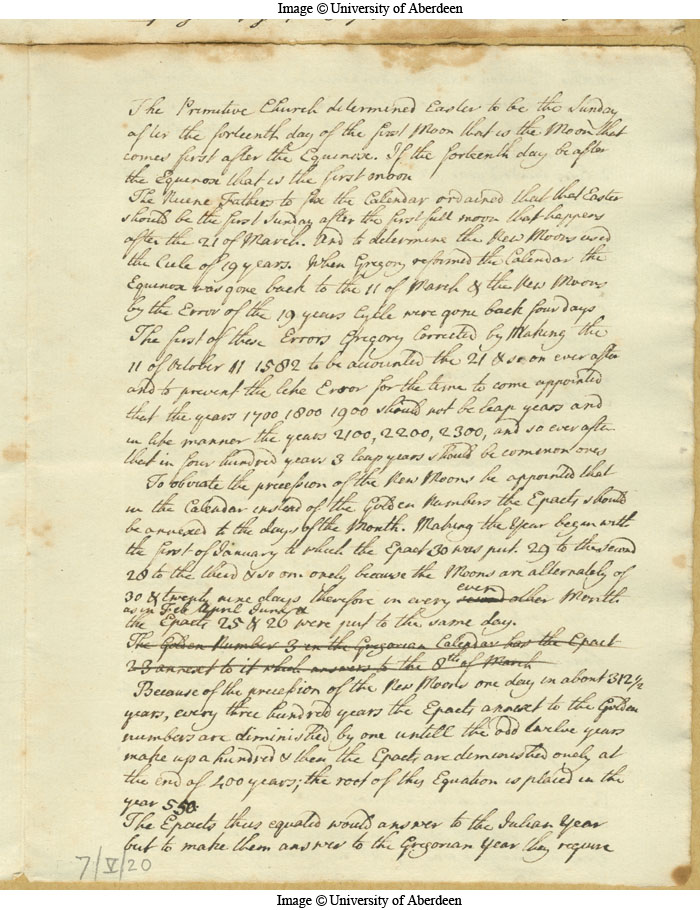 Image © University of Aberdeen
The Primitive Church determined Easter to be the Sunday
after the forteenth day of the first Moon that is the Moon that
comes first after the Equenox. If the forteenth day be after
the Equenox that is the first moon
The Nicene Fathers to fix the Calendar ordained that that Easter
should be the first Sunday after the first full moon that happens
after the 21 of March. And to determine the New Moons used
the Cicle of 19 years. When Gregory reformed the Calendar the
Equenox was gone back to the 11 of March & the New Moons
by the Error of the 19 years Cycle were gone back four days
The first of these Errors Gregory Corrected by Making the
11 of October 11 1582 to be acounted the 21 & so on ever after
and to prevent the like Error for the time to come appointed
that the years 1700 1800 1900 should not be leap years and
in like manner the years 2100, 2200, 2300, and so ever after
that in four hundred years 3 leap years should be common ones
To obviate the precession of the New Moons he appointed that
in the Calendar instead of the Golden Numbers the Epacts should
be annexed to the days of the Month. Making the Year begin with
the first of January to which the Epact 30 was put. 29 to the second
28 to the third & so on. onely because the Moons are alternately of
30 & twenty nine days therefore in every second other even Month
as in Feb April June &
the Epacts 25 & 26 were put to the same day.
The Golden Number 3 in the Gregorian Calendar has the Epact
23 annext to it which answers to the 8th of March
Because of the precession of the New Moons one day in about 312 1/2
years, every three hundred years the Epacts annext to the Golden
numbers are diminished by one untill the odd twelve years
make up a hundred & then the Epacts are deminished onely at
the end of 400 years; the root of this Equation is placed in the
year 550.
The Epacts thus equated would answer to the Julian Year
but to make them answer to the Gregorian Year they require
7/V/20
Image © University of Aberdeen